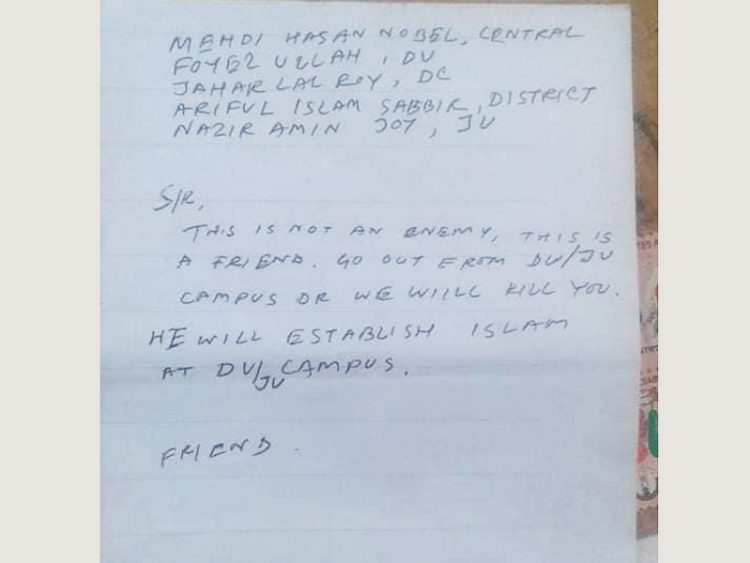 MEHDI HASAN NOBEL, CENTRAL
FOYEZ ULLAH, DU
JAHAR LAL ROY, DC
ARIFUL ISLAM SABBIR, DISTRICT
NAZIR AMIN JOY, JU
SIR,
THIS IS NOT AN ENEMY, THIS IS
A FRIEND. GO OUT FROM DU/JU
CAMPUS OR WE WIILL KILL YOU.
HE WILL ESTABLISH ISLAM
AT DU/JU CAMPUS.
FRIEND